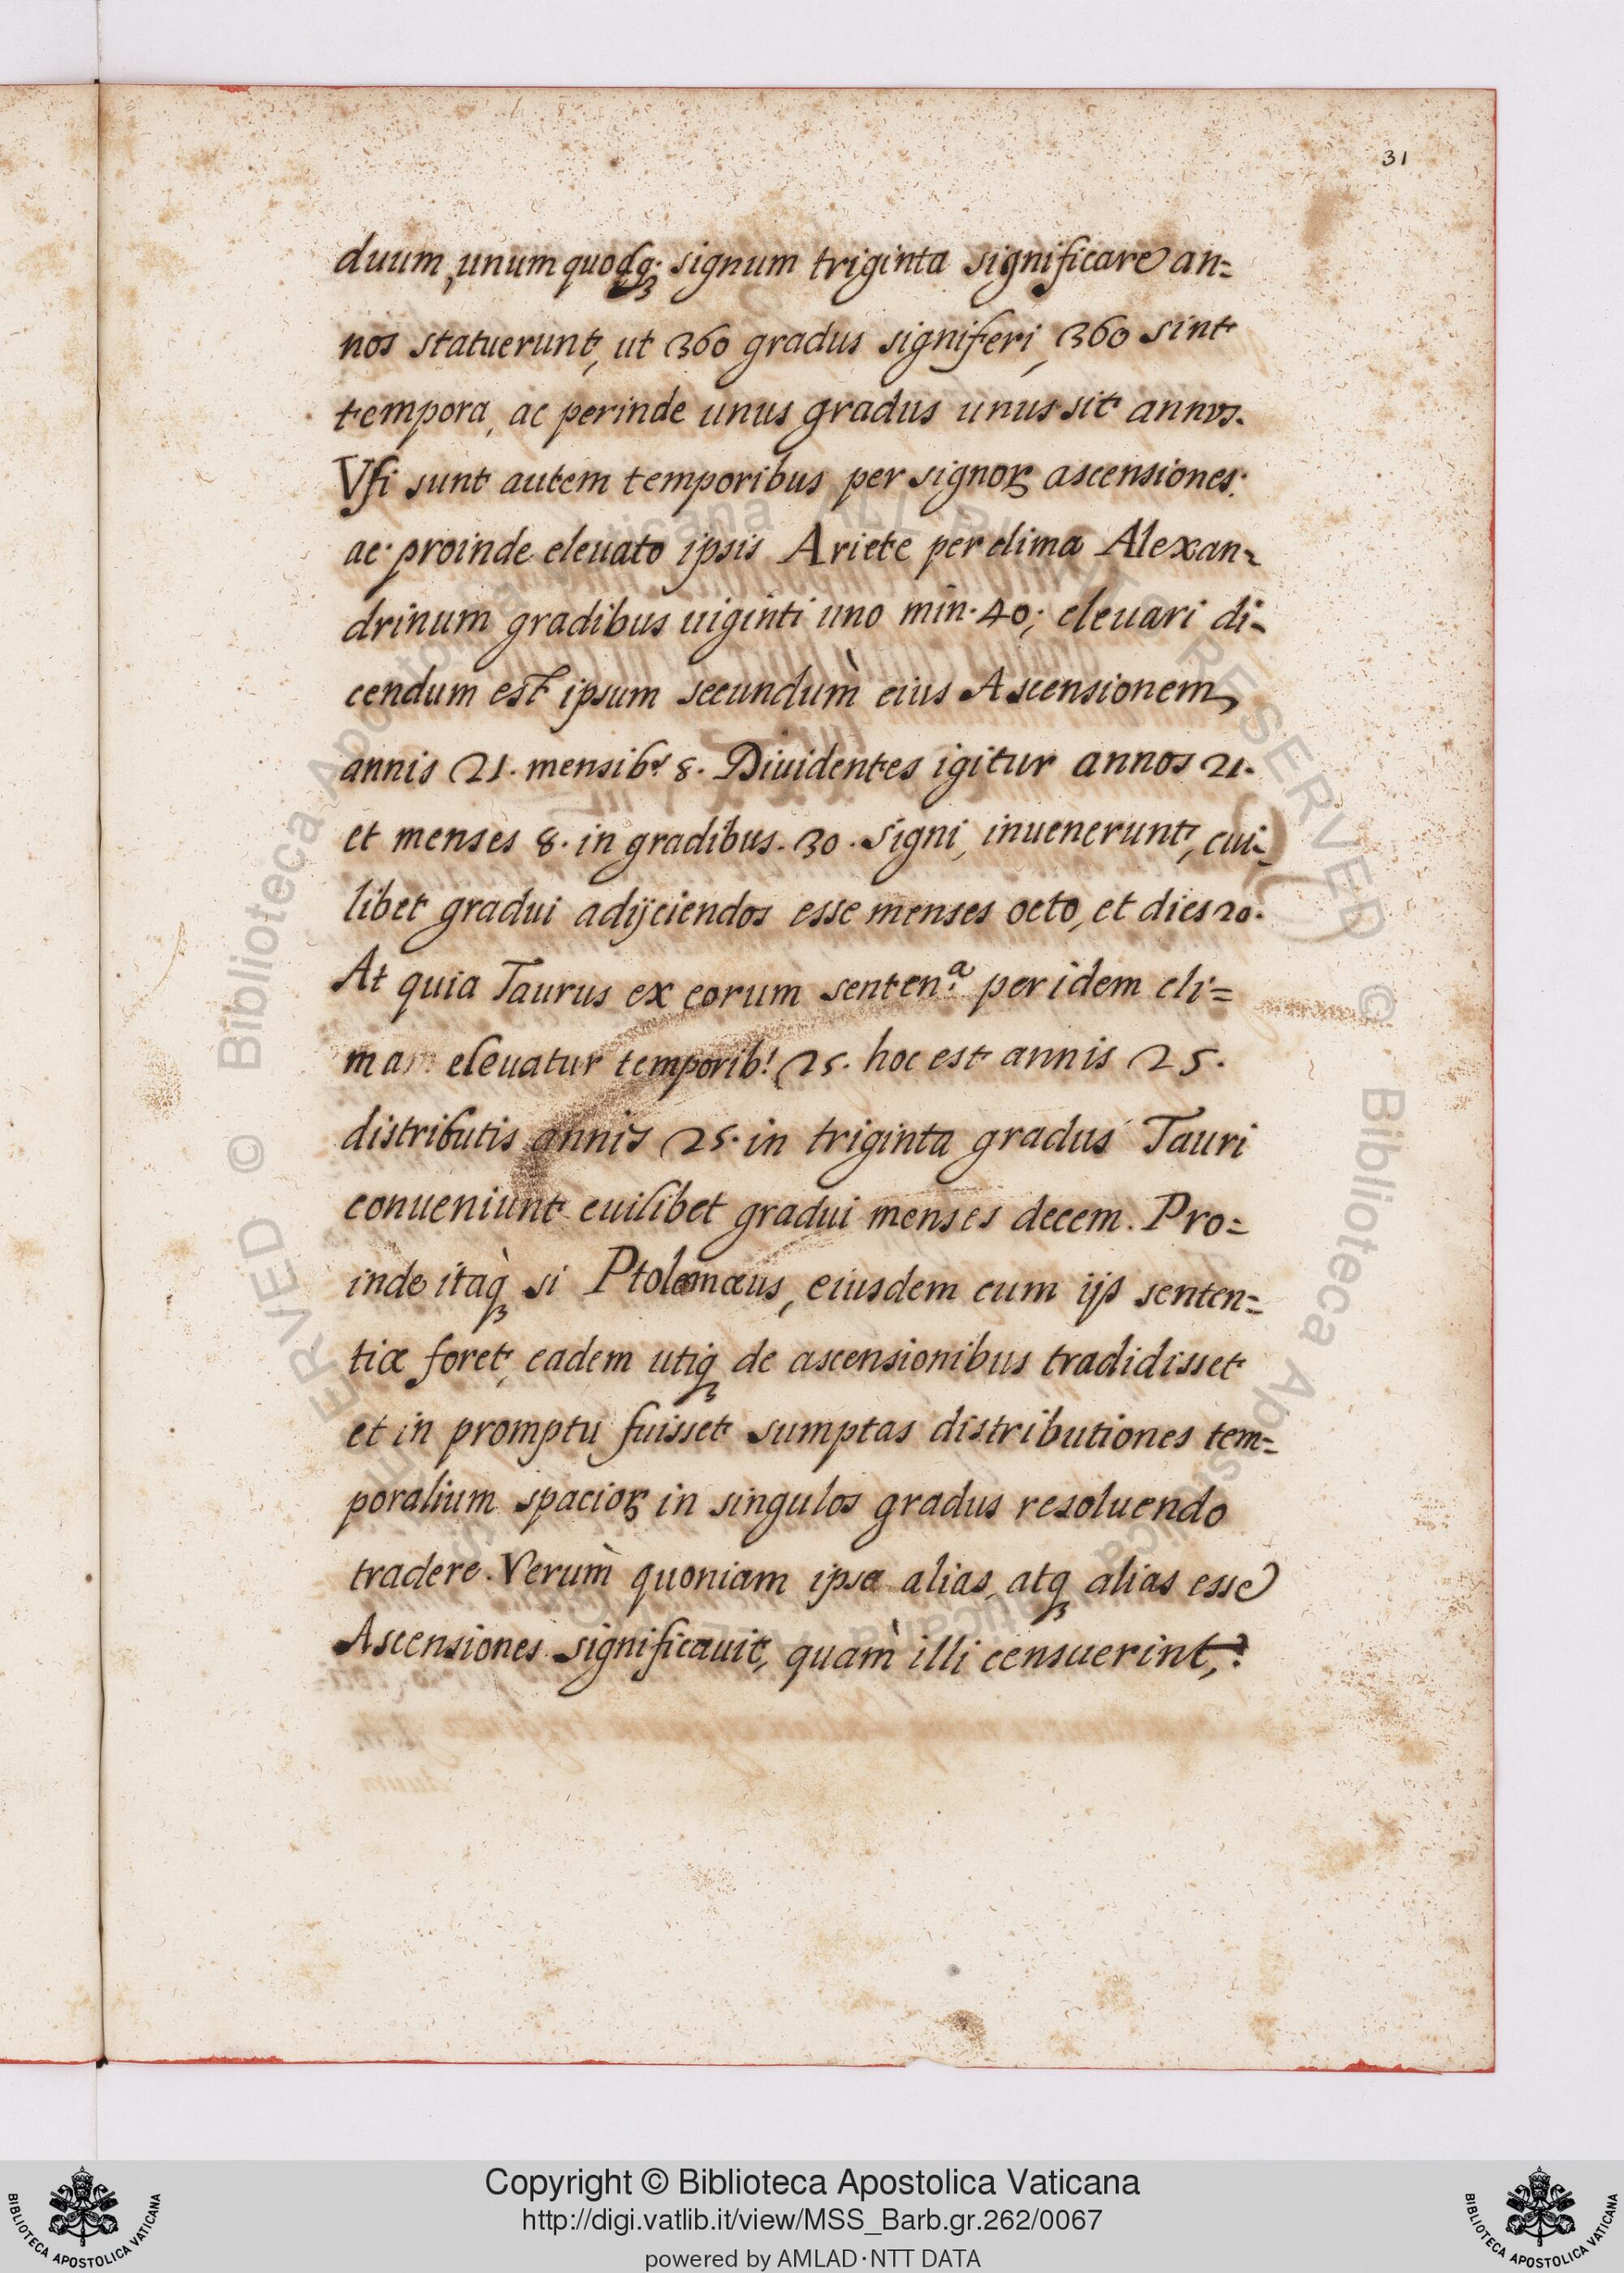 31
duum, unumquodqꝫ signum triginta significare an=
nos statuerunt, ut 360 gradus signiferi, 360 sint
tempora, ac perinde unus gradus unus sit annus.
Vsi sunt autem temporibus per signoꝝ ascensiones:
ac proinde eleuato ipsis Ariete per clima Alexan-
drinum gradibus uiginti uno min. 40; eleuari di-
cendum est ipsum secundum̀ eius Ascensionem
annis 21. mensibꝰ 8. Diuidentes igitur annos 21.
et menses 8. in gradibus. 30. Signi, inuenerunt, cui-
libet gradui adijciendos esse menses octo, et dies 20.
At quia Taurus ex eorum senten.ª per idem cli=
ma eleuatur temporib! 25. hoc est annis 25.
distributis annis 25. in triginta gradus Tauri
conueniunt cuilibet gradui menses decem. Pro=
inde itaq̀ꝫ si Ptolemæus, eiusdem cum ijs senten=
tiæ foret, eadem utiqꝫ de ascensionibus tradidisset
et in promptu fuisset sumptas distributiones tem=
poralium spacioꝝ in singulos gradus resoluendo
tradere. Verum̀ quoniam ipse alias, atqꝫ alias esse
Ascensiones significauit, quam̀ illi censuerint,
BIBLIOTECA APOSTOLICA VATICANA
Copyright © Biblioteca Apostolica Vaticana
http://digi.vatlib.it/view/MSS_Barb.gr.262/0067
powered by AMLAD·NTT DATA
BIBLIOTECA APOSTOLICA VATICANA